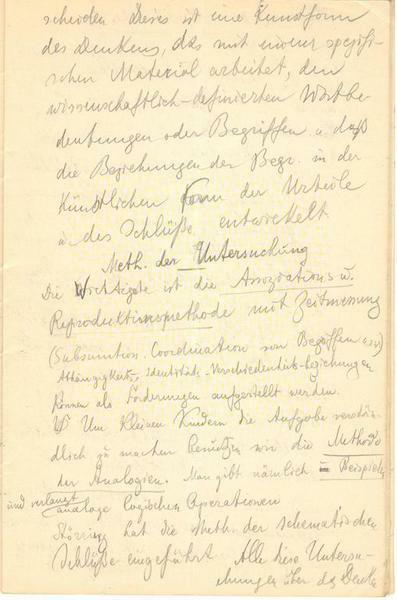 scheiden. Dieses ist eine Kunstform
des Denkens, das mit einem spezifi-
schen Material arbeitet, den
wissenschaftlich-definierten Wortbe
deutungen oder Begriffen u. daß
die Beziehungen der Begr. in der
künstlichen Form der Urteile
u. des Schlüße entwickelt
Meth. der Untersuchung
Die Wichtigste ist die Assoziations u.
Reproduktionsmethode mit Zeitmessung
(Subsumtion. Coordination von Begriffen usw)
Abhängigkeits, Identitäts-Verschiedenheits-beziehungen
können als Förderungen aufgestellt werden.
Um kleinen Kindern die Aufgabe verstän
dlich zu machen benutzen wir die Methode
der Analogien. Man gibt nämlich Beispiele
und verlangt analoge logischen Operationen
Störring hat die Meth. der schematischen
Schlüße eingeführt. Alle diese Untersu-
chungen über das Denken